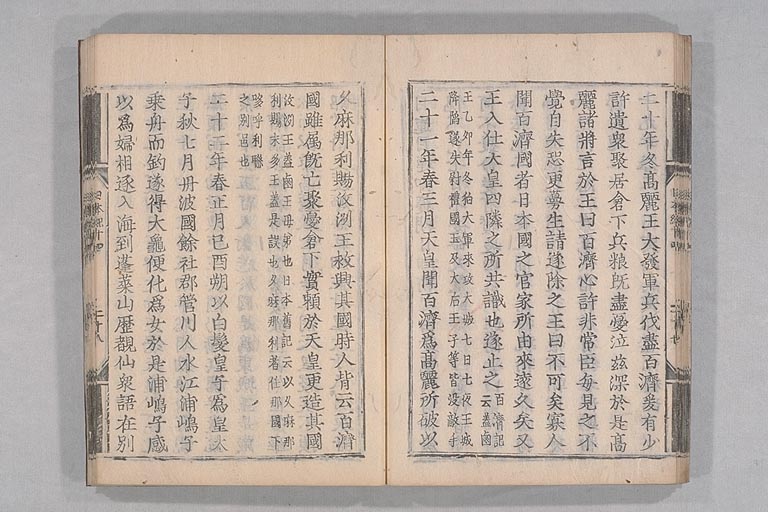 二十年冬高麗王大發軍兵伐盡百濟爰有少
許遺衆聚居倉下兵粮既盡憂泣茲深於是高
麗諸將言於王曰百濟心許非常臣每見之不
覺自失恐更蔓生請遂除之王曰不可矣寡人
聞百濟國者日本國之官家所由來遠久矣又
王入仕天皇四隣之所共識也遂止之百濟記云蓋鹵
王乙卯年冬狛大軍來攻大城七日七夜王城
降陷遂失尉禮國王及大后王子等皆没敵手
二十一年春三月天皇聞百濟爲高麗所破以
久麻那利賜汶洲王救興其國時人皆云百濟
國雖屬既亡聚憂倉下實賴於天皇更造其國
汶洲王蓋鹵王母弟也日本舊記云以久麻那
利賜末多王蓋是誤也久麻那利者任那國下
哆呼利縣
之別邑也
二十二年春正月己酉朔以白髮皇子爲皇太
子秋七月丹波國餘社郡管川人水江浦嶋子
乘舟而釣遂得大龜便化爲女於是浦嶋子感
以爲婦相逐入海到蓬萊山歷覩仙衆語在別